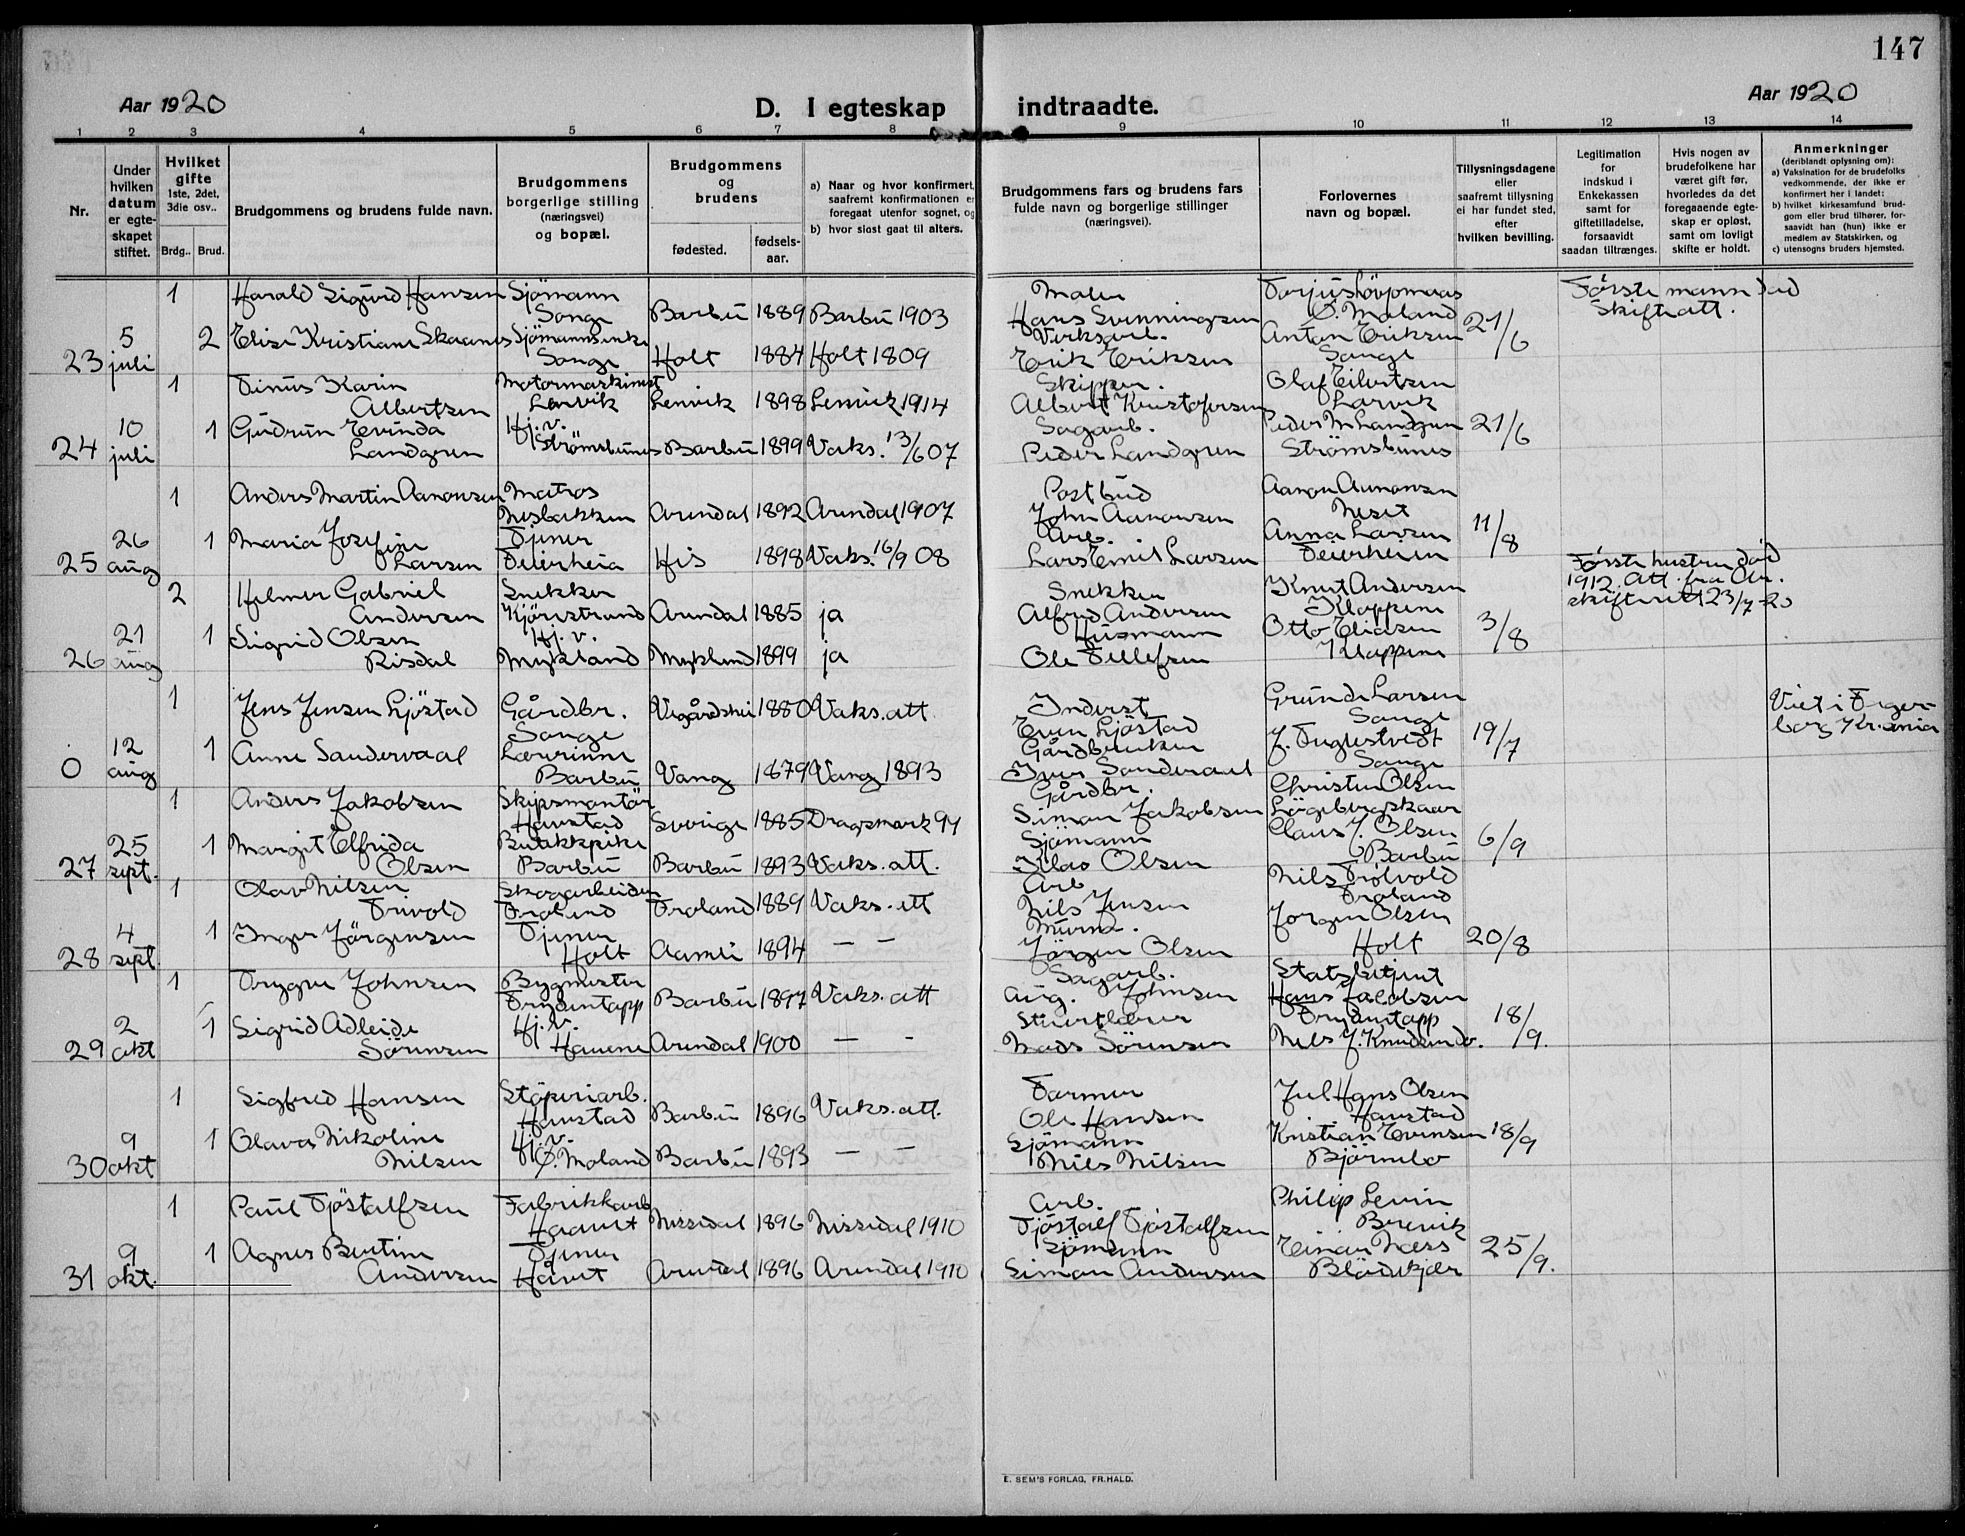 147
Aar 1920
D. I egteskap indtraadte.
Aar 1920
1 2 3 4 5 6 7 8 9 10 11 12 13 14
Nr.
Under hvilken datum er egte-skapet stiftet.
Hvilket gifte
1ste, 2det, 3die osv..
Brdg.. Brud.
Brudgommens og brudens fulde navn.
Brudgommens borgerlige stilling (næringsvei) og bopæl.
Brudgommens og brudens
fødested.
fødsels-aar.
a) Naar og hvor konfirmert, saafremt konfirmationen er foregaat utenfor sognet, og
b) hvor sidst gaat til alters.
Brudgommens fars og brudens fars fulde navn og borgerlige stillinger (næringsvei).
Forlovernes navn og bopæl.
Tillysningsdagene eller saafremt tillysning ei har fundet sted, efter hvilken bevilling.
Legitimation for indskud i Enkekassen samt for giftetilladelse, forsaavidt saadan tiltrænges.
Hvis nogen av brudefolkene har været gift før, hvorledes da det foregaaende egte-skap er opløst, samt om lovligt skifte er holdt.
Anmerkninger
(deriblandt oplysning om):
a) Vaksination for de brudefolks vedkommende, der ikke er konfirmert her i landet;
b) hvilket kirkesamfund brud-gom eller brud tilhører, for-saavidt han (hun) ikke er medlem av Statskirken, og
c) utensogns bruders hjemsted.
1 Harald Sigurd Hansen Sjömann Maler
Songe Barbu 1889 Barbu 1903 Hans Svenningsen Ø. Moland 21/6 Første mann död
Skifteatt.
5 2 Elise Kristiane Skaanes Sjömannsenke Verksarb. Anton Eriksen
23 juli Songe Holt 1884 Holt 1809 Erik Eriksen Songe
1 Tinus Karin Motormaskinist Skipper. Olaf Eilertsen
Albertsen Larvik Lenvik 1898 Lenvik 1914 Albert Kristofersen Larvik
10 1 Gudrun Evinda Hj. v. Sagarb. Peder M Landgren 21/6
24 juli Landgren Strömsbunes Barbu 1899 Vaks. 13/6 07 Peder Landgren Strömsbunes
1 Anders Martin Aanonsen Matros Postbud Aanon Aanonsen
Nesbakken Arendal 1892 Arendal 1907 John Aanonsen Neset 11/8
26 1 Maria Josefine Tjener Arb. Anna Larsen
25 aug Larsen Feierheia His 1898 Vaks. 16/9 08 Lars Emil Larsen Feierheien
2 Helmer Gabriel Snekker Snekker Knut Andersen Første hustru död
1912. Att. fra Ar.
skifterett 23/7-20
Andersen Kjöristrand Arendal 1885 ja Alfred Andersen Kloppene
21 1 Sigrid Olsen Hj. v. Husmann Otto Eliasen 3/8
26 aug Risdal Mykland Mykland 1899 ja Ole Tellefsen Kloppene
1 Jens Jensen Ljöstad Gårdbr. Vegårdshei 1880 Vaks. att. Inderst Grunde Larsen Viet i Fager-
borg Kr.ania
Songe Even Ljöstad Songe 19/7
12 1 Anne Sandervaal Lærerinne Gårdbruker J. Fuglestvedt
0 aug Barbu Vang 1879 Vang 1893 Iver Sonderaal Songe
1 Anders Jakobsen Skipsmontör Gårdbr. Christen Olsen
Havstad Sverige 1885 Dragsmark 94 Simon Jakobsen Lögebergskaar
25 1 Margit Elfrida Butikkpike Sjömann Claus J. Olsen 6/9
27 sept. Olsen Barbu Barbu 1893 Vaks. att. Klas Olsen Barbu
1 Olav Nilsen Skogarbeider Arb Nils Trivold
Trivold Froland Froland 1889 Vaks. att Nils Jensen Froland
4 1 Inger Jörgensen Tjener Murer. Jorgen Olsen 20/8
28 sept. Holt Aamli 1894 — — Jörgen Olsen Holt
1 Trygve Johnsen Bygmester Sagarb. Statsbetjent
Frydentapp Barbu 1897 Vaks. att Aug. Johnsen Hans Jacobsen
2 1 Sigrid Adleide Hj. v. Stuertlærer Frydentapp 18/9.
29 okt Sörensen Havene Arendal 1900 — — Mads Sörensen Nels J. Knudsen do.
1 Sigfred Hansen Stöperiarb. Farmer Jul Hans Olsen
Havstad Barbu 1896 Vaks. att. Ole Hansen Havstad
9 1 Olava Nikoline Hj. v. Sjömann Kristian Evensen 18/9
30 okt Nilsen Ø. Moland Barbu 1893 — — Nils Nilsen Björnebo
1 Paul Tjöstolfsen Fabrikkarb Arb. Philip Levin
Haavet Nissedal 1896 Nissedal 1910 Tjöstolf Tjöstolfsen Brevik
9 1 Agnes Bertine Tjener Sjömann Einar Næss 25/9.
31 okt. Andersen Håvet Arendal 1896 Arendal 1910 Simon Andersen Blödekjær
E. SEM'S FORLAG, FR.HALD.